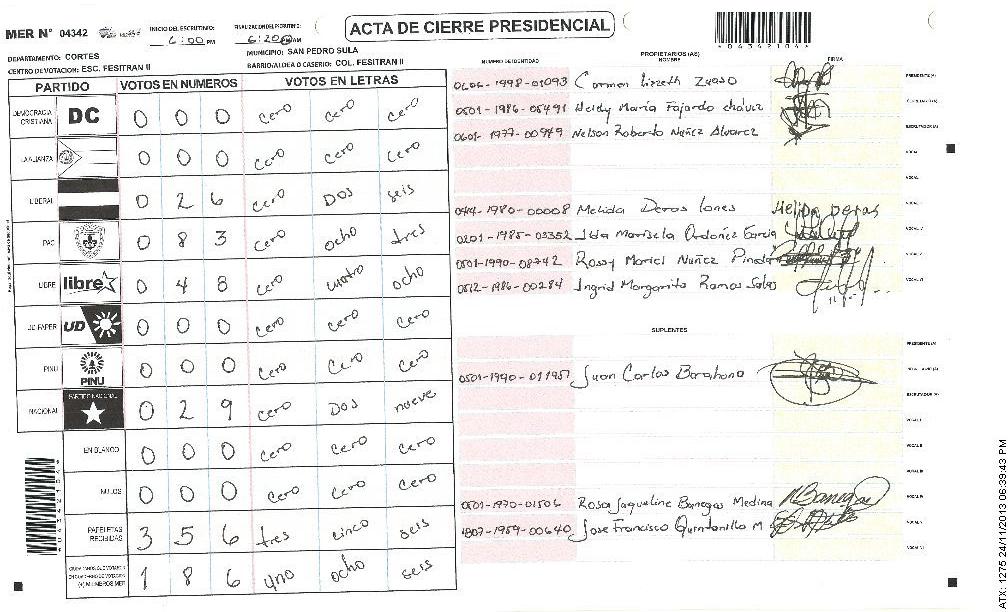 MER N° 04342
INICIO DEL ESCRUTINIO: 6:00 PM
FINALIZACION DEL ESCRUTINIO: 6:20 PM AM
ACTA DE CIERRE PRESIDENCIAL
DEPARTAMENTO: CORTES
MUNICIPIO: SAN PEDRO SULA
CENTRO DE VOTACION: ESC. FESITRAN II
BARRIO/ALDEA O CASERIO: COL. FESITRAN II
PARTIDO VOTOS EN NUMEROS VOTOS EN LETRAS
DEMOCRACIA CRISTIANA DC 0 0 0 cero cero cero
LA ALIANZA 0 0 0 cero cero cero
LIBERAL 0 2 6 cero Dos seis
PAC 0 8 3 cero ocho tres
LIBRE libre 0 4 8 cero cuatro ocho
UD-FAPER UD 0 0 0 cero cero cero
PINU PINU 0 0 0 cero cero cero
NACIONAL PARTIDO NACIONAL 0 2 9 cero Dos nueve
EN BLANCO 0 0 0 cero cero cero
NULOS 0 0 0 cero cero cero
PAPELETAS RECIBIDAS 3 5 6 tres cinco seis
CIUDADANOS QUE VOTARON EN CUADERNO DE VOTACION (+) MIEMBROS MER 1 8 6 uno ocho seis
PROPIETARIOS (AS)
NUMERO DE IDENTIDAD NOMBRE FIRMA
0606-1998-01093 Carmen Lizzeth PRESIDENTE (A)
0501-1986-05491 Heldy María Fajardo chávez
0601-1977-00949 Nelson Roberto Nuñez Alvarez ESCRUTADOR (A)
VOCAL
VOCAL
1980-00008 Melida
0201-1985-03352 Ilda Marisela Ordoñez García
0501-1990-08742 Rossy Mariel Nuñez Pineda
0512-1986-00284 Ingrid Margarita Ramos
SUPLENTES
PRESIDENTE (A)
0501-1990-011951 Juan Carlos Barahona
ESCRUTADOR (A)
VOCAL I
VOCAL II
VOCAL III
0501-1970-01506 Rosa Jaqueline Banegas Medina VOCAL IV
1807-1959-00640 Jose Francisco Quintanilla M VOCAL V
VOCAL VI
ATX: 1275 24/11/2013 06:39:43 PM